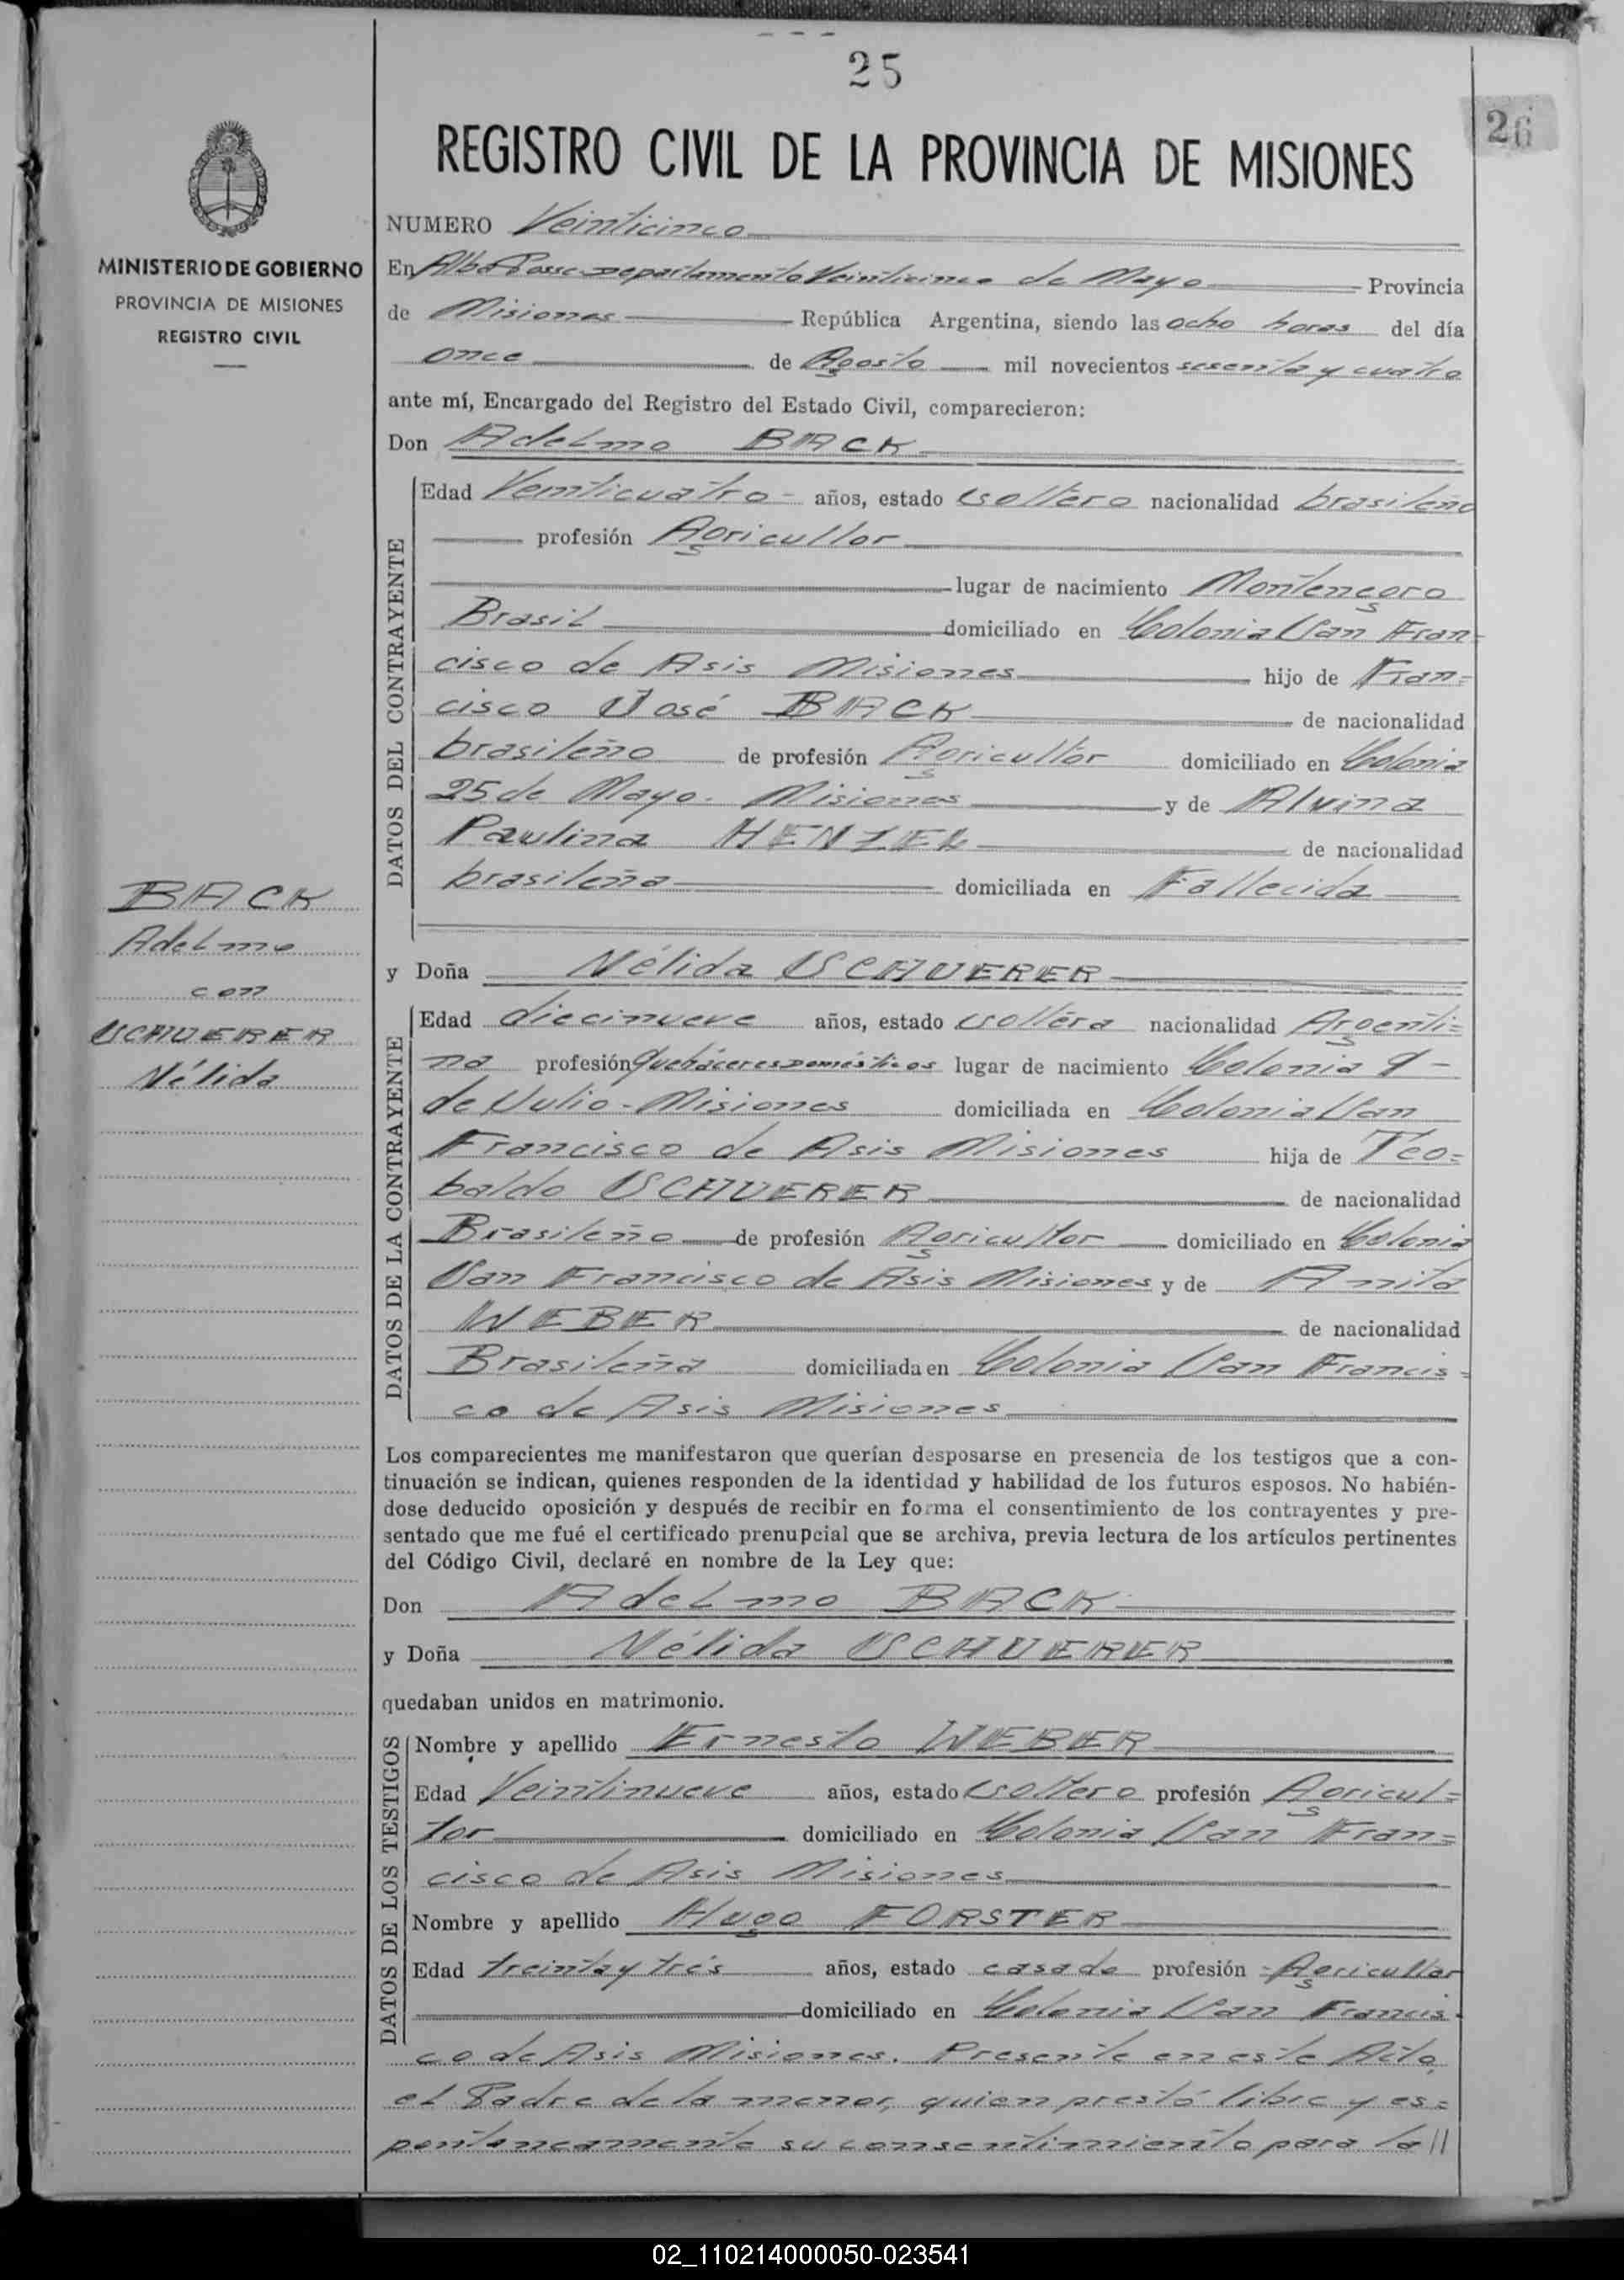 25
26
REGISTRO CIVIL DE LA PROVINCIA DE MISIONES
MINISTERIO DE GOBIERNO
PROVINCIA DE MISIONES
REGISTRO CIVIL
BACK
Adelmo
con
SCHUERER
Nélida
NUMERO Veinticinco
En Alba Posse Departamento Veinticinco de Mayo Provincia
de Misiones República Argentina, siendo las ocho horas del día
once de Agosto mil novecientos sesenta y cuatro
ante mí, Encargado del Registro del Estado Civil, comparecieron:
Don Adelmo BACK
DATOS DEL CONTRAYENTE
Edad Veinticuatro - años, estado soltero nacionalidad brasileño
profesión Agricultor
lugar de nacimiento Montenegro
Brasil domiciliado en Colonia San Fran=
cisco de Asis Misiones hijo de Fran=
cisco José BACK de nacionalidad
brasileño de profesión Agricultor domiciliado en Colonia
25 de Mayo. Misiones y de Alvina
Paulina HENZEL de nacionalidad
brasileña domiciliada en Fallecida
y Doña Nélida SCHUERER
DATOS DE LA CONTRAYENTE
Edad diecinueve años, estado soltera nacionalidad Argenti=
na profesión Quehaceres Domésticos lugar de nacimiento Colonia 9 -
de Julio - Misiones domiciliada en Colonia San
Francisco de Asis Misiones hija de Teo=
baldo SCHUERER de nacionalidad
Brasileño de profesión Agricultor domiciliado en Colonia
San Francisco de Asis Misiones y de Anita
WEBER de nacionalidad
Brasileña domiciliada en Colonia San Francis=
co de Asis Misiones
Los comparecientes me manifestaron que querían desposarse en presencia de los testigos que a con-
tinuación se indican, quienes responden de la identidad y habilidad de los futuros esposos. No habién-
dose deducido oposición y después de recibir en forma el consentimiento de los contrayentes y pre-
sentado que me fué el certificado prenupcial que se archiva, previa lectura de los artículos pertinentes
del Código Civil, declaré en nombre de la Ley que:
Don Adelmo BACK
y Doña Nélida SCHUERER
quedaban unidos en matrimonio.
DATOS DE LOS TESTIGOS
Nombre y apellido Ernesto WEBER
Edad Veintinueve años, estado soltero profesión Agricul=
tor domiciliado en Colonia San Fran=
cisco de Asis Misiones
Nombre y apellido Hugo FORSTER
Edad treinta y trés años, estado casado profesión Agricultor
domiciliado en Colonia San Francis-
co de Asis Misiones. Presente en este Acto,
el Padre de la menor, quien prestó libre y es=
pontaneamente su consentimiento para la //
02_110214000050-023541